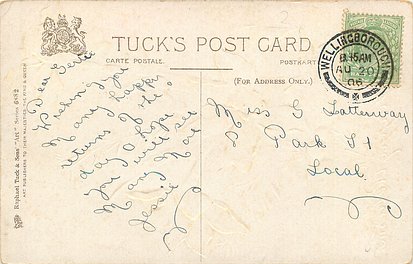 TUCK'S POST CARD
CARTE POSTALE.
POSTKARTE
(FOR ADDRESS ONLY.)
WELLINGBOROUGH
AU 20
Dear Gertie
Wishing you
Many happy
returns of the
day I hope
you will see
Many More
Jessie
Miss G
Park St
Local.
Raphael Tuck & Sons' "Art" Series
ART PUBLISHERS TO THEIR MAJESTIES THE KING & QUEEN